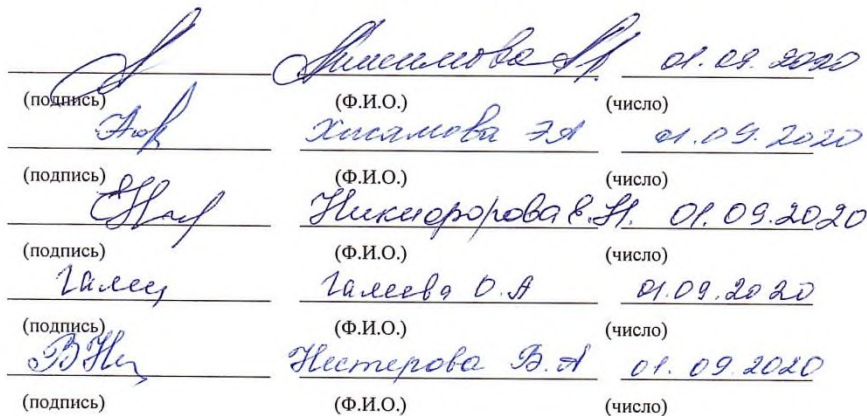 01.09.2020
(подпись) (Ф.И.О.) (число)
Хисамова Э А 01.09.2020
(подпись) (Ф.И.О.) (число)
Никифорова Е.Н. 01.09.2020
(подпись) (Ф.И.О.) (число)
Галеева О.А 01.09.2020
(подпись) (Ф.И.О.) (число)
Нестерова В.А 01.09.2020
(подпись) (Ф.И.О.) (число)